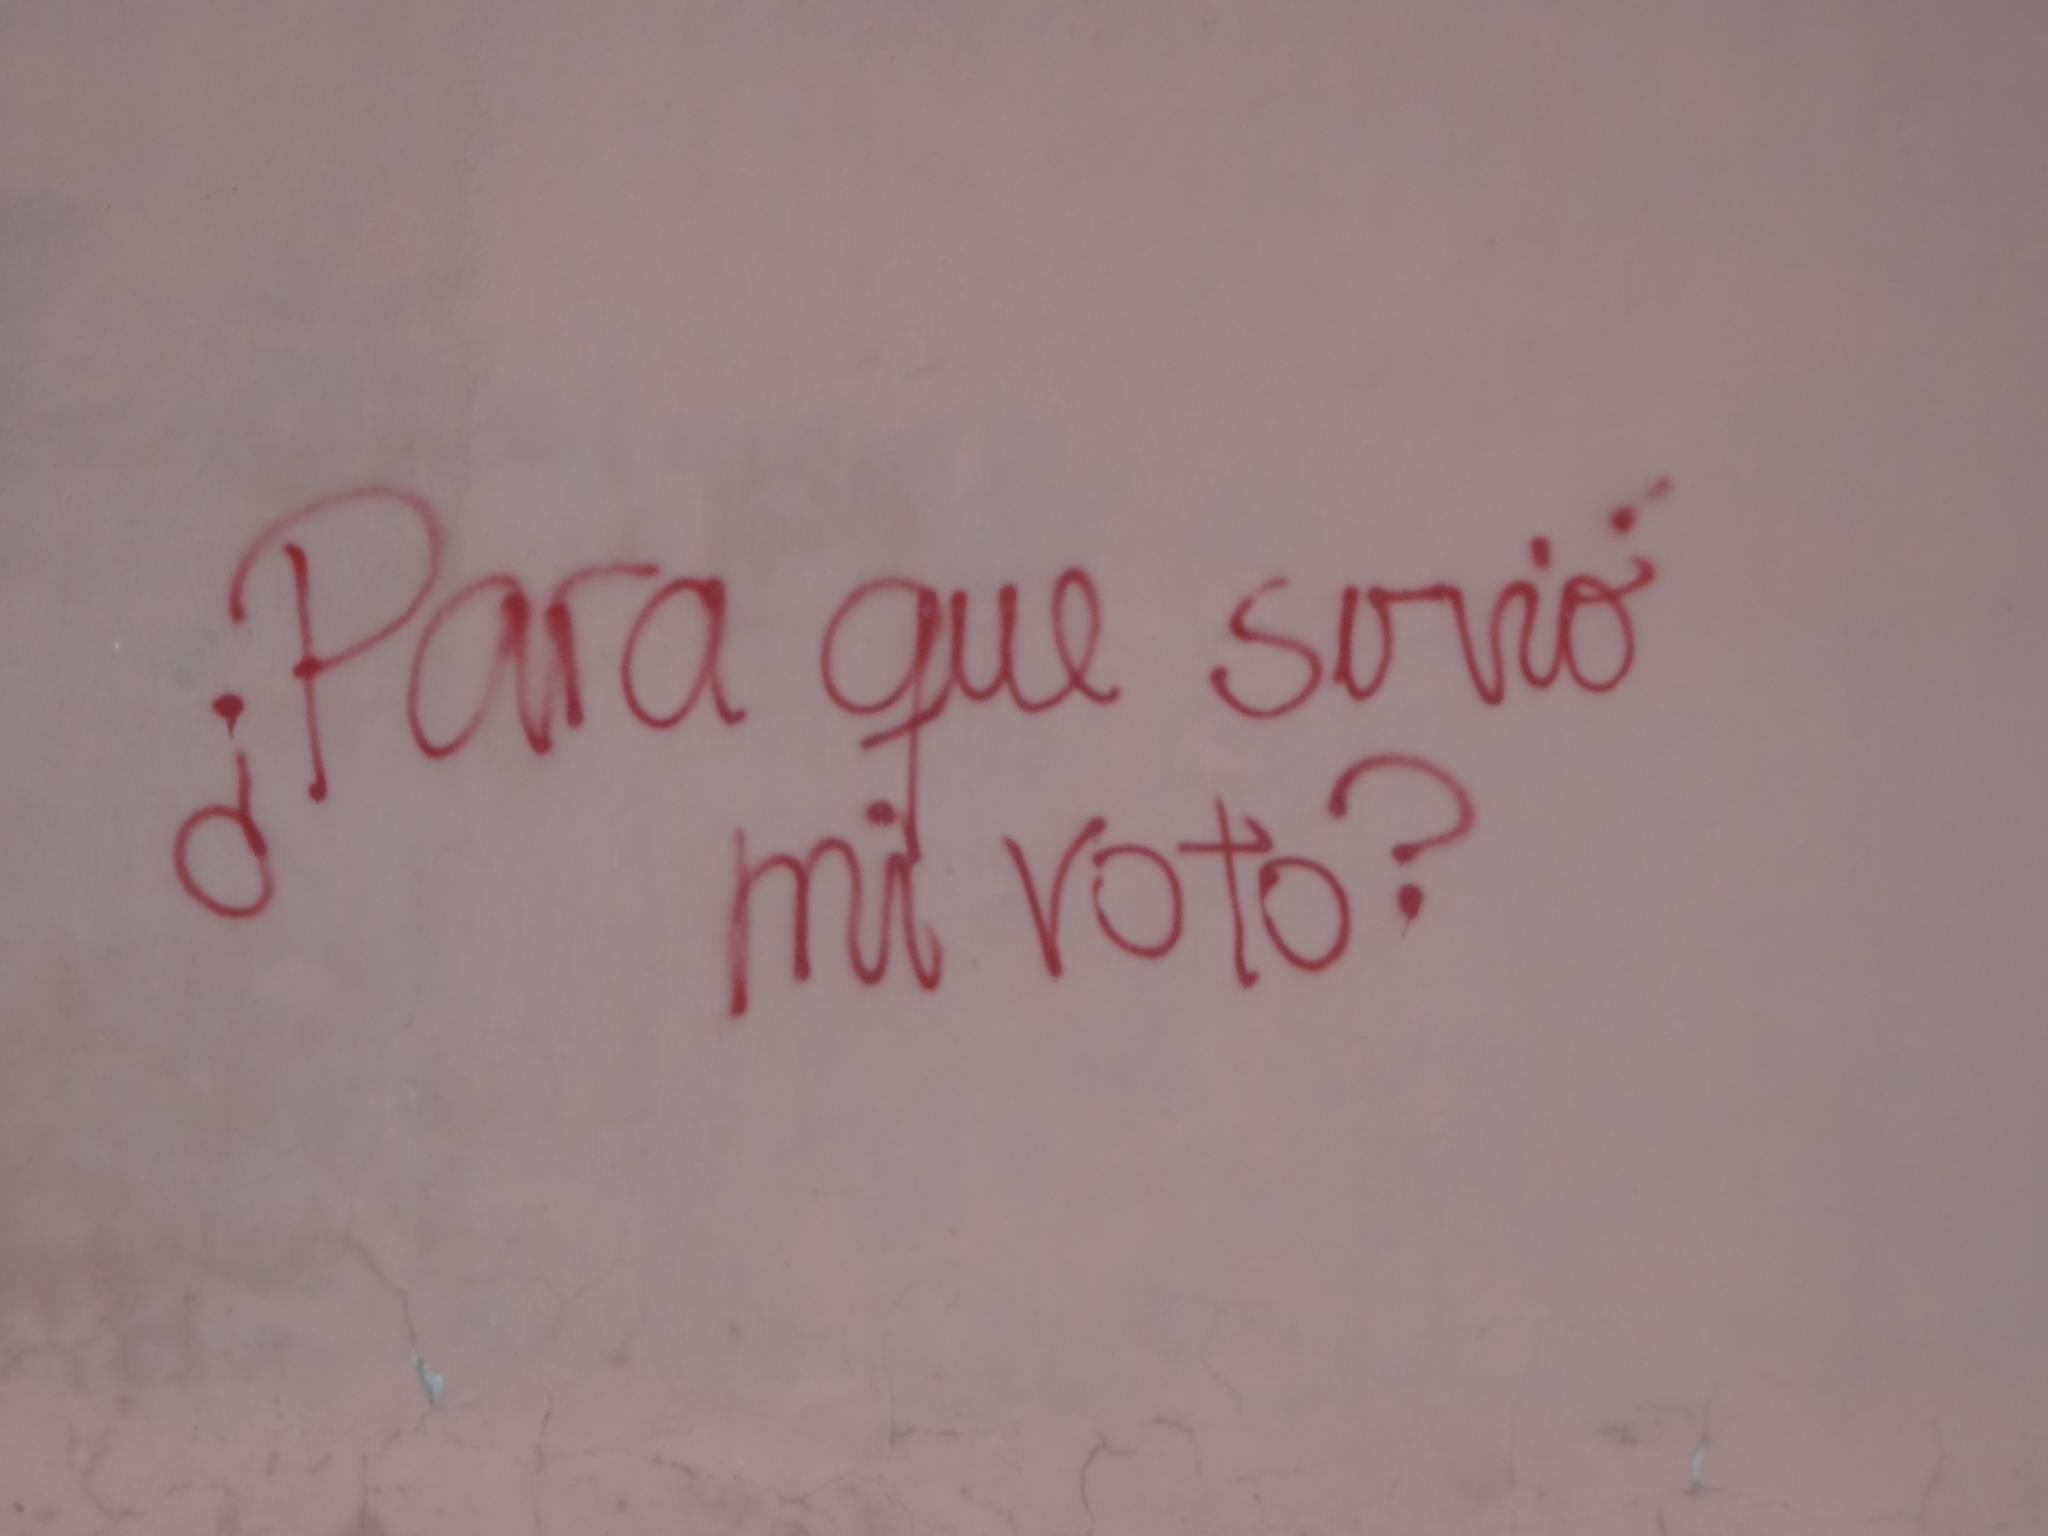 ¿Para que sirvió
mi voto?